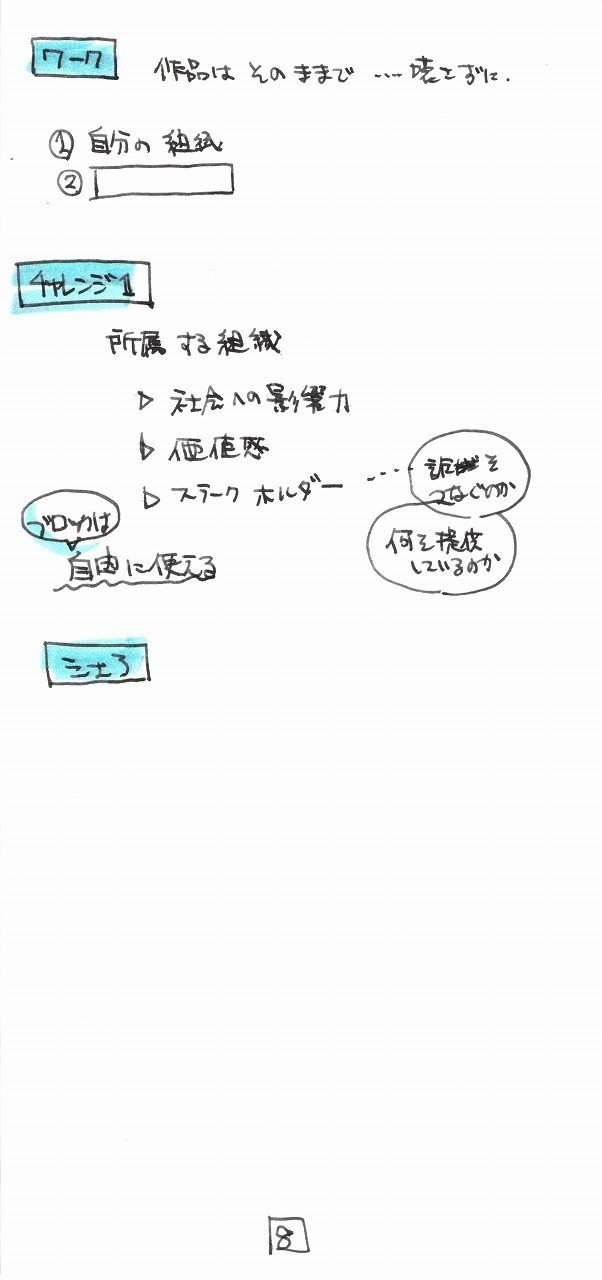 ワーク
作品は そのままで ・・・・壊さずに.
① 自分の 組織
②
チャレンジ1
所属する組織
▷ 社会への影響力
▷ 価値感
▷ ステークホルダー ・・・
つなぐのか
何を提供
しているのか
ブロックは
自由に使える
シェア
8